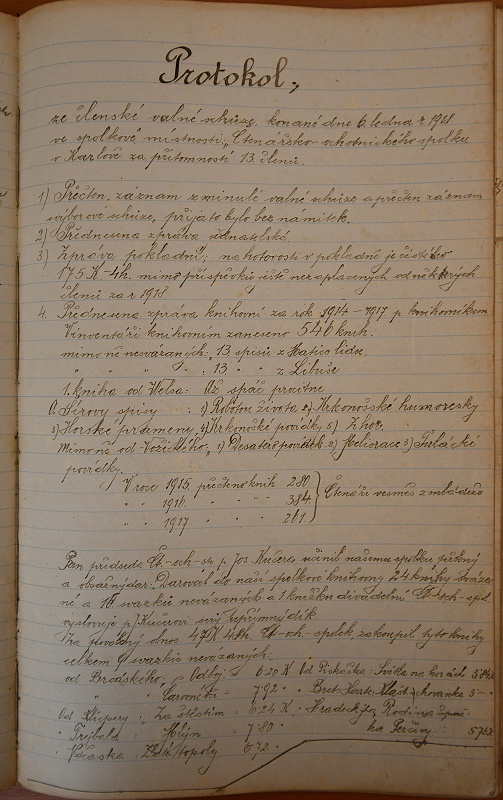 Protokol,
ze členské valné schůze, konané dne 6. ledna r 1918
ve spolkové místnosti, Čtenářsko-ochotnického spolku
v Karlově za přítomnosti 13. členů.
1) Přečten, záznam z minulé valné schůze a přečten záznam
výborové schůze, přijato bylo bez námitek.
2) Přednesena zpráva jednatelská.
3) Zpráva pokladní; na hotovosti v pokladně je čistého
175 K -4h. mimo příspěvků ještě nezaplacených od některých
členů za r 1918
4. Přednesena zpráva knihovní za rok 1914 - 1917 p. knihovníkem
V inventáři knihovním zaneseno 546 knih.
mimo ně nesvázaných: 13 spisů z Matice lidu,
" " " 13 " z Libuše
1. kniha od Welsa: Až spáč procitne
spisy : 1) Robotou života 2) Krkonošské humoresky
3) Horské prameny, 4) Krkonošé povídky 5) Z hor.
Mimo ně od 1) Desatero povídek 2) Meliorace 3)
povídky.
V roce 1915 přečteno knih 280
" " 1916 " " " 384
" " 1917 " " " 201
Čtenáři vesměs z mládeže
Pan předseda Čt.-och.-sp. p. Jos Kučera učinil našemu spolku pěkný
a obsáhlý dar: Daroval do naší spolkové knihovny 24 knihy sváza
né a 10 svazků nevázaných a 1 knížku divadelní. Čt.-och.-spol.
vyslovuje p. Kučerovi svůj upřímný dík
Za obnos 47 K 44h. Čt.-och.-spolek, zakoupil tyto knihy
celkem svazků nevázaných:
od Brodského, Odboj I 6.20 K Od Piskáčka - Světla na horách
" Čaroměj 7.92 "
Od Klicpery, Za štěstím 6.24 K Hradecký, Rodina
" Trejbala " Mlýn 7.80 " 5762
" 6.72 "